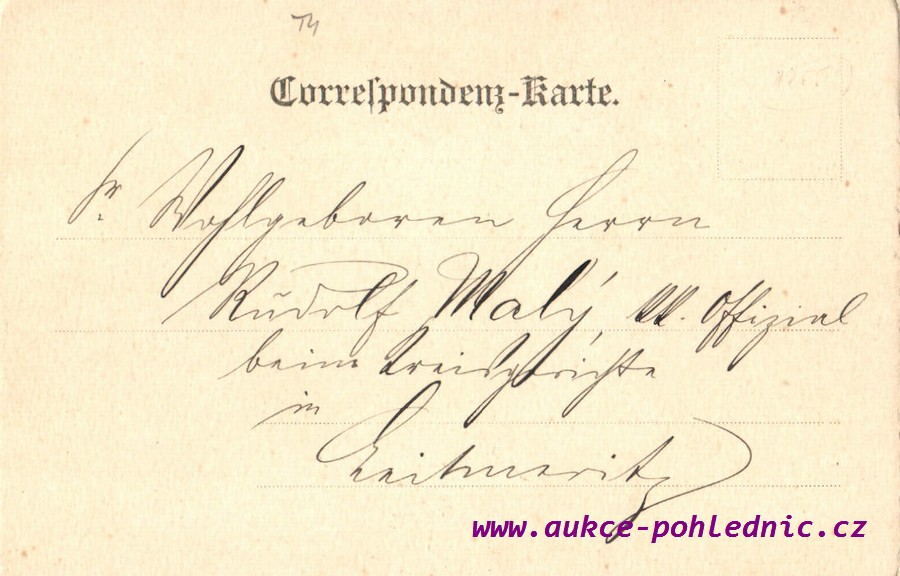 Correspondenz-Karte.
Sr. Wohlgeboren Herrn
Rudolf Malý, k.k. Offizial
beim Kreisgerichte
in
Leitmeritz
www.aukce-pohlednic.cz